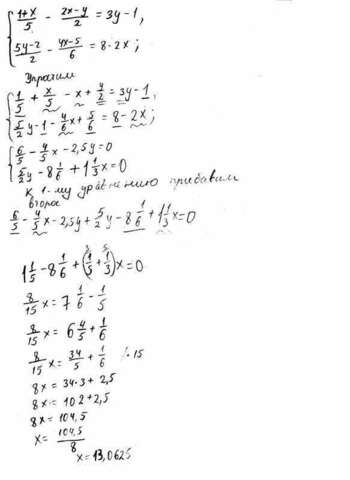 { (1+x)/5 - (2x-y)/2 = 3y-1,
{ (5y-2)/2 - (4x-5)/6 = 8-2x;
Упрастим
{ 1/5 + x/5 - x + y/2 = 3y-1,
{ 5/2 y - 1 - 4/6 x + 5/6 = 8-2x;
{ 6/5 - 4/5 x - 2,5y = 0
{ 5/2 y - 8 1/6 + 1 1/3 x = 0
К 1-му уравнению прибавим
второе
6/5 - 4/5 x - 2,5y + 5/2 y - 8 1/6 + 1 1/3 x = 0
1 1/5 - 8 1/6 + (1/5 + 1/3) x = 0
8/15 x = 7 1/6 - 1/5
8/15 x = 6 4/5 + 1/6
8/15 x = 34/5 + 1/6 |·15
8x = 34·3 + 2,5
8x = 102 + 2,5
8x = 104,5
x = 104,5/8
x = 13,0625